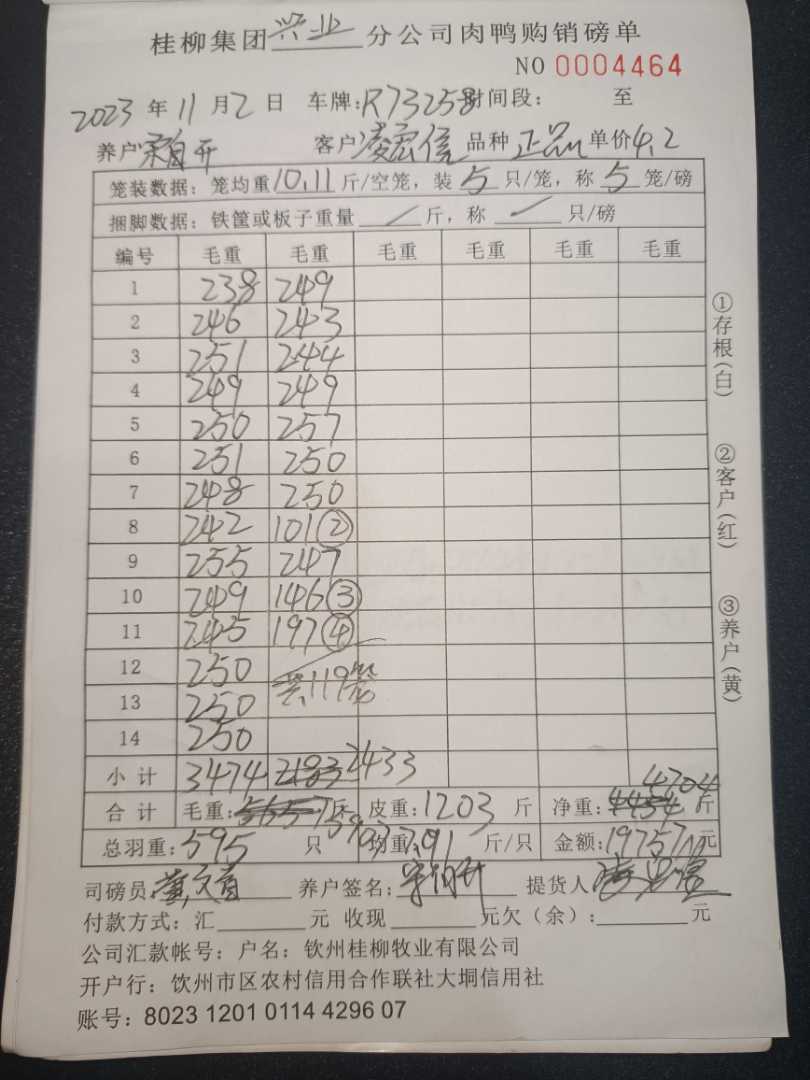 桂柳集团兴业分公司肉鸭购销磅单
NO 0004464
2023年11月2日 车牌:R73258时间段: 至
养户 开 客户凌宏信 品种正品 单价4.2
笼装数据:笼均重10.11斤/空笼,装5只/笼,称5笼/磅
捆脚数据:铁筐或板子重量/斤,称/只/磅
编号 毛重 毛重 毛重 毛重 毛重 毛重
1 238 249
2 246 243
3 251 244
4 249 249
5 250 257
6 251 250
7 248 250
8 242 101②
9 255 247
10 249 146③
11 245 197④
12 250 共119笼
13 250
14 250
小计 3474 2183 2433 4704
合计 毛重:5657斤 5907 皮重:1203斤 净重:4454斤
总羽重:595只 均重:7.91斤/只 金额:19757元
司磅员: 养户签名: 提货人
付款方式:汇 元 收现 元欠(余): 元
公司汇款帐号:户名:钦州桂柳牧业有限公司
开户行:钦州市区农村信用合作联社大垌信用社
账号:8023 1201 0114 4296 07
①存根(白)
②客户(红)
③养户(黄)